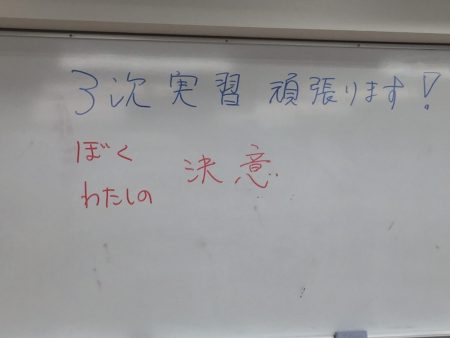 3次実習 頑張ります!
ぼく
わたしの 決意